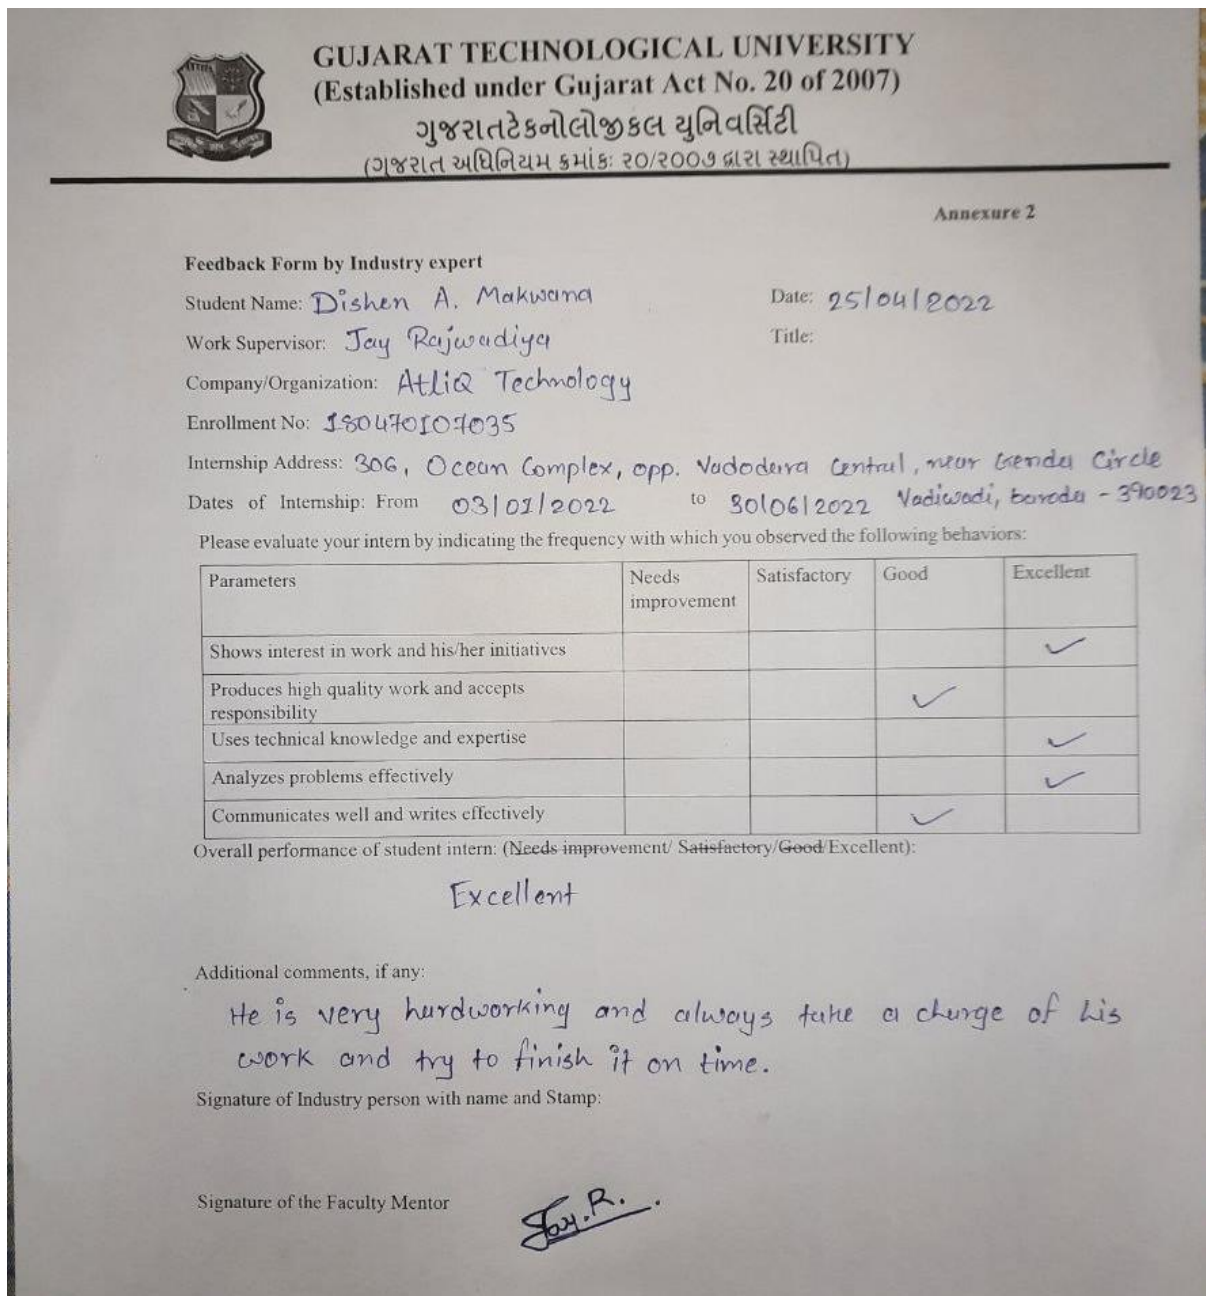 GUJARAT TECHNOLOGICAL UNIVERSITY
(Established under Gujarat Act No. 20 of 2007)
ગુજરાતટેકનોલોજીકલ યુનિવર્સિટી
(ગુજરાત અધિનિયમ ક્રમાંક: ૨૦/૨૦૦૭ દ્વારા સ્થાપિત)
Annexure 2
Feedback Form by Industry expert
Student Name: Dishen A. Makwana Date: 25/04/2022
Work Supervisor: Jay Rajwadiya Title:
Company/Organization: AtliQ Technology
Enrollment No: 180470107035
Internship Address: 306, Ocean Complex, opp. Vadodara Central, near Genda Circle
Dates of Internship: From 03/01/2022 to 30/06/2022 Vadiwadi, baroda - 390023
Please evaluate your intern by indicating the frequency with which you observed the following behaviors:
Parameters Needs improvement Satisfactory Good Excellent
Shows interest in work and his/her initiatives ✓
Produces high quality work and accepts
responsibility ✓
Uses technical knowledge and expertise ✓
Analyzes problems effectively ✓
Communicates well and writes effectively ✓
Overall performance of student intern: (Needs improvement/ Satisfactory/Good/Excellent):
Excellent
Additional comments, if any:
He is very hardworking and always take a charge of his
work and try to finish it on time.
Signature of Industry person with name and Stamp:
Signature of the Faculty Mentor Jay.R.